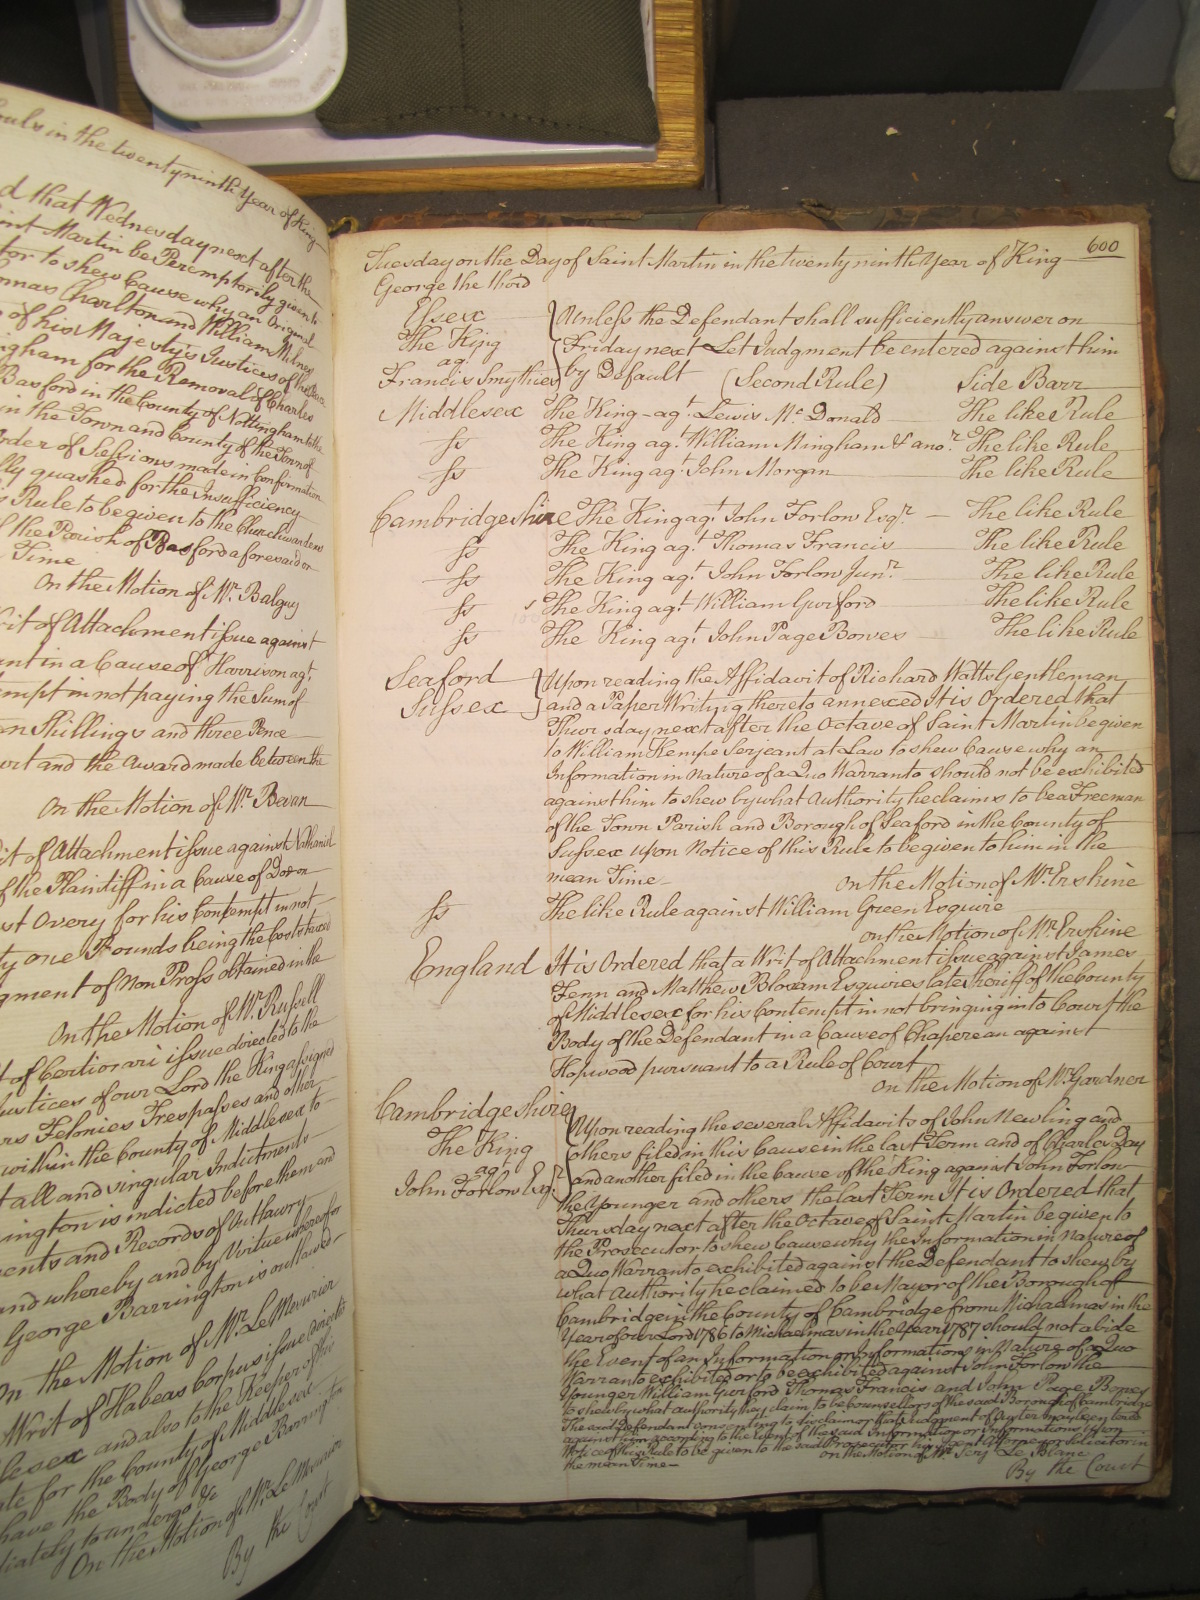 ouls in the twentyninth Year of King
d that Wednesday next after the
int Martin be Peremptorily given to
tor to shew Cause why an Original
omas Charlton and William Milnes
of his Majesty's Justices of the
igham for the Removal of Charles
Basford in the County of Nottingham to the
in the Town and County of the Town of
rder of Sessions made in Confirmation
lly quashed for the Insufficiency
s Rule to be given to the Churchwardens
f the Parish of Basford aforesaid or
Time
On the Motion of Mr. Balguy
rit of Attachment issue against
ant in a Cause of Harrison agt.
empt in not paying the Sum of
n Shillings and three Pence
urt and the Award made between the
On the Motion of Mr. Bevan
it of Attachment issue against Nathaniel
f the Plaintiff in a Cause of Doe on
st Overy for his Contempt in not
ty one Pounds being the Costs taxed
gment of Non Pross obtained in the
On the Motion of Mr. Russell
t of Certiorari issue directed to the
ustices of our Lord the King assigned
rs Felonies Trespasses and other
within the County of Middlesex to
t all and singular Indictments
ington is indicted before them and
ents and Records of Outlawry
and whereby and by Virtue whereof or
George Barrington is outlawed
On the Motion of Mr. Le Mesurier
Writ of Habeas Corpus issue directed to
lesex and also to the Keeper of the
ate for the County of Middlesex
have the Body of George Barrington
diately to undergo &c
On the Motion of Mr. Le Mesurier
By the Court
600
Tuesday on the Day of Saint Martin in the twenty ninth Year of King
George the third
Essex Unless the Defendant shall sufficiently answer on
The King Friday next Let Judgment be entered against him
agt.
Francis Smythies by Default (Second Rule) Side Barr
Middlesex The King agt. Lewis Mc. Donald The like Rule
Ss The King agt. William Mingham & anor. The like Rule
Ss The King agt. John Morgan The like Rule
Cambridgeshire The King agt. John Forlow Esqr. The like Rule
Ss The King agt. Thomas Francis The like Rule
Ss The King agt. John Forlow Junr. The like Rule
Ss The King agt. William Gurford The like Rule
Ss The King agt. John Page Bowes The like Rule
Seaford Upon reading the Affidavit of Richard Watts Gentleman
Sussex and a Paper Writing thereto annexed It is Ordered that
Thursday next after the Octave of Saint Martin be given
to William Kempe Serjeant at Law to shew Cause why an
Information in nature of a Quo Warranto should not be exhibited
against him to shew by what Authority he claims to be a Freeman
of the Town Parish and Borough of Seaford in the County of
Sussex upon Notice of this Rule to be given to him in the
mean Time On the Motion of Mr. Erskine
Ss The like Rule against William Green Esquire
On the Motion of Mr. Erskine
England It is Ordered that a Writ of Attachment issue against James
Fenn and Matthew Bloxam Esquires late Sheriff of the County
of Middlesex for his Contempt in not bringing into Court the
Body of the Defendant in a Cause of Chapereau against
Hopwood pursuant to a Rule of Court
On the Motion of Mr. Gardner
Cambridgeshire
Upon reading the several Affidavits of John Newling and
The King others filed in this Cause in the last Term and of Charles Day
agt. and another filed in the Cause of the King against John Forlow
John Forlow Esqr. the Younger and others the last Term It is Ordered that
Thursday next after the Octave of Saint Martin be given to
the Prosecutor to shew Cause why the Information in nature of
a Quo Warranto exhibited against the Defendant to shew by
what Authority he claimed to be Mayor of the Borough of
Cambridge in the County of Cambridge from Michaelmas in the
Year of our Lord 1786 to Michaelmas in the Year 1787 should not abide
the Event of an Information or Informations in Nature of a Quo
Warranto exhibited or to be exhibited against John Forlow the
Younger William Gurford Thomas Francis and John Page Bowes
to shew by what authority they claim to be Councillors of the said Borough of Cambridge
The said Defendant consenting to disclaim or that Judgment of Ouster may be entered
against him according to the Event of the said Information or Informations upon
Notice of this Rule to be given to the said Prosecutor his Agent Attorney or Solicitor in
the mean Time On the Motion of Mr. Serjt. Le Blanc
By the Court